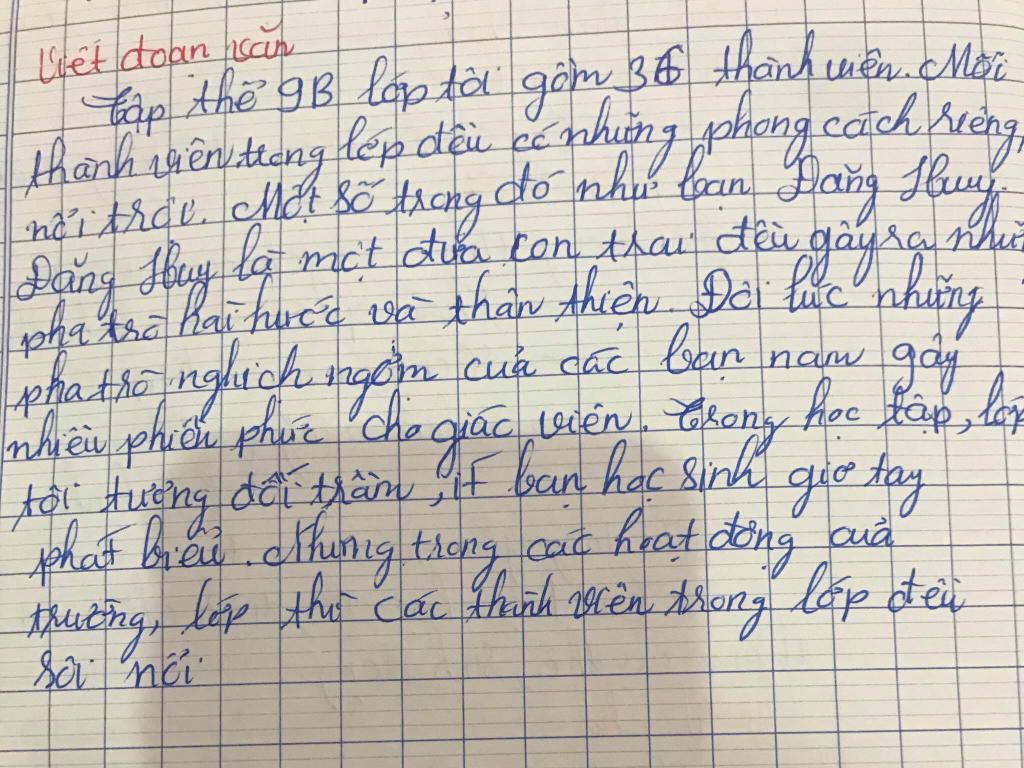 Viết đoạn văn
Tập thể 9B lớp tôi gồm 36 thành viên. Mỗi
thành viên trong lớp đều có những phong cách riêng,
nổi trội. Một số trong đó như bạn Đăng Huy.
Đăng Huy là một đứa con trai đều gây ra nhữ
pha trò hài hước và thân thiện. Đôi lúc những
pha trò nghịch ngợm của các bạn nam gây
nhiều phiền phức cho giác viên. Trong học tập, lớp
tôi tương đối trầm, ít bạn học sinh giơ tay
phát biểu. Nhưng trong các hoạt động của
trường, lớp thì các thành viên trong lớp đều
sôi nổi